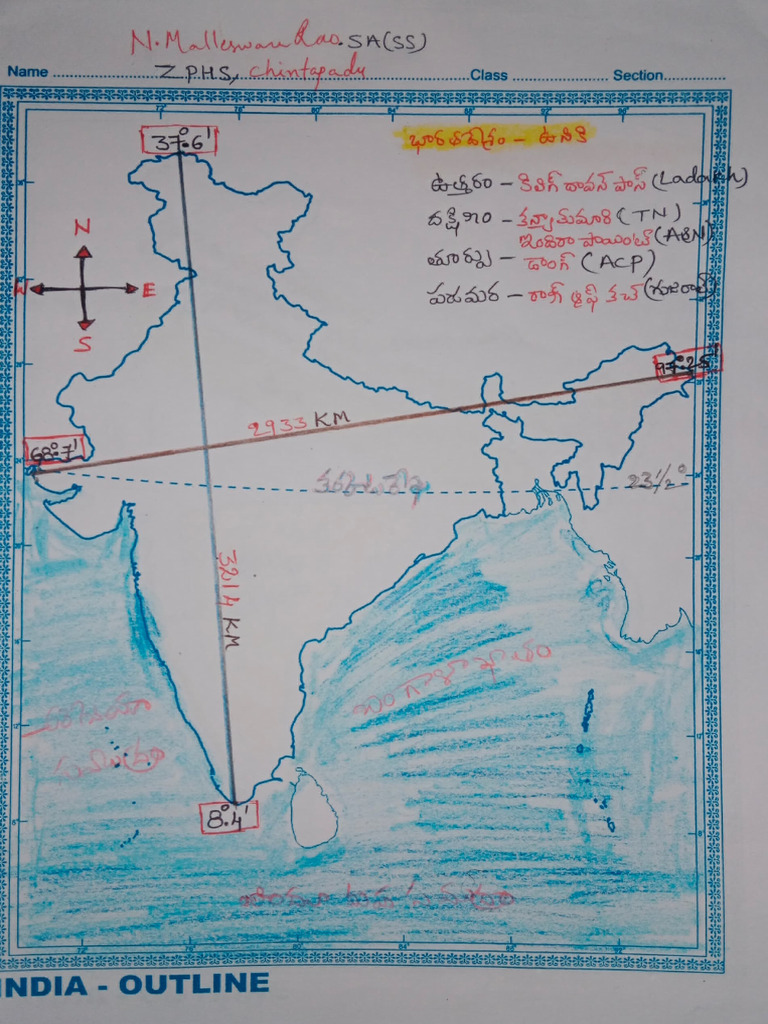 N. Malleswara Rao. SA(SS)
Name Z.P.H.S, Chintapadu Class Section
భారతదేశం - ఉనికి
37° 6'
ఉత్తరం - కిలిగ్ దావన్ పాస్ (Ladakh)
దక్షిణం - కన్యాకుమారి (TN)
ఇందిరా పాయింట్ (A&N)
తూర్పు - డాంగ్ (ACP)
పడమర - రాణ్ ఆఫ్ కచ్ (గుజరాత్)
N
W E
S
97° 25'
2933 KM
68° 7'
23 1/2°
3214 KM
బంగాళాఖాతం
సముద్రం
8° 4'
INDIA - OUTLINE